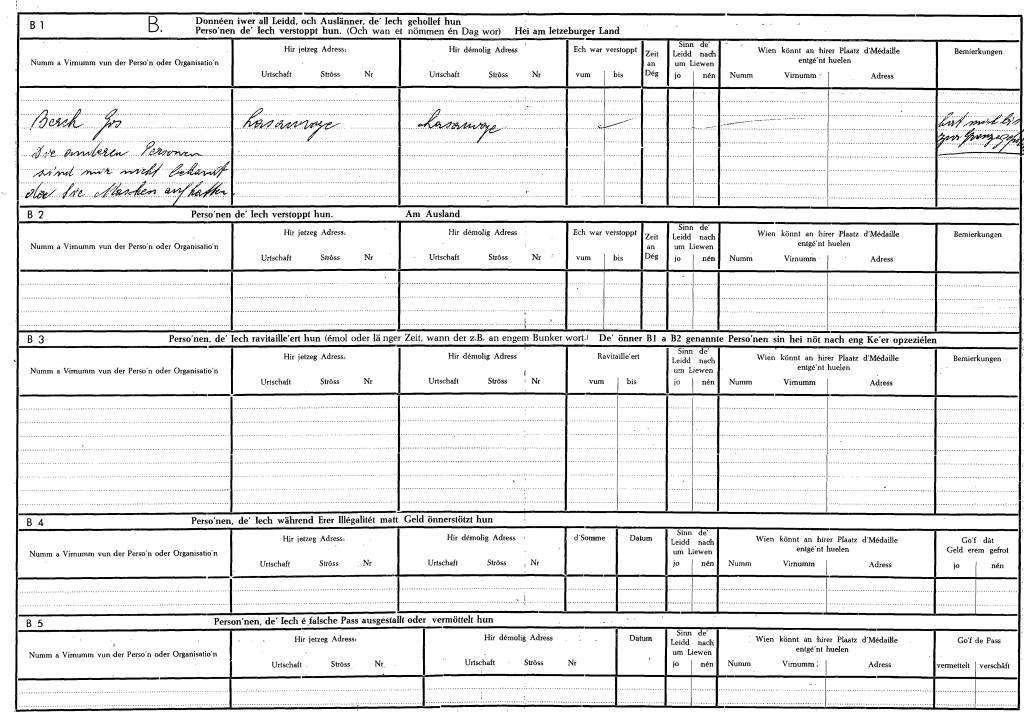 B 1
B.
Donnéen iwer all Leidd, och Auslänner, de' Iech gehollef hun
Perso'nen de' Iech verstoppt hun. (Och wan et nömmen én Dag wor) Hei am letzeburger Land
Numm a Virnumm vun der Perso'n oder Organisatio'n
Hir jetzeg Adress:
Urtschaft Ströss Nr
Hir démolig Adress
Urtschaft Ströss Nr
Ech war verstoppt
vum bis
Zeit
an
Dég
Sinn de'
Leidd nach
um Liewen
jo nén
Wien könnt an hirer Plaatz d'Médaille
entgé'nt huelen
Numm Virnumm Adress
Bemierkungen
Berck Jos Lasauvage Lasauvage
hat mich bis
zur Grenze
Die anderen Personen
sind mir nicht bekannt
da Sie Masken auf hatten.
B 2
Perso'nen de' Iech verstoppt hun. Am Ausland
Numm a Virnumm vun der Perso'n oder Organisatio'n
Hir jetzeg Adress:
Urtschaft Ströss Nr
Hir démolig Adress
Urtschaft Ströss Nr
Ech war verstoppt
vum bis
Zeit
an
Dég
Sinn de'
Leidd nach
um Liewen
jo nén
Wien könnt an hirer Plaatz d'Médaille
entgé'nt huelen
Numm Virnumm Adress
Bemierkungen
B 3
Perso'nen, de' Iech ravitaille'ert hun (émol oder länger Zeit, wann der z.B. an engem Bunker wort.) De' önner B1 a B2 genannte Perso'nen sin hei nöt nach eng Ke'er opzeziélen
Numm a Virnumm vun der Perso'n oder Organisatio'n
Hir jetzeg Adress:
Urtschaft Ströss Nr
Hir démolig Adress
Urtschaft Ströss Nr
Ravitaille'ert
vum bis
Sinn de'
Leidd nach
um Liewen
jo nén
Wien könnt an hirer Plaatz d'Médaille
entgé'nt huelen
Numm Virnumm Adress
Bemierkungen
B 4
Perso'nen, de' Iech während Erer Illégalitét matt Geld önnerstötzt hun
Numm a Virnumm vun der Perso'n oder Organisatio'n
Hir jetzeg Adress:
Urtschaft Ströss Nr
Hir démolig Adress
Urtschaft Ströss Nr
d'Somme
Datum
Sinn de'
Leidd nach
um Liewen
jo nén
Wien könnt an hirer Plaatz d'Médaille
entgé'nt huelen
Numm Virnumm Adress
Go'f dât
Geld erem gefrot
jo nén
B 5
Person'nen, de' Iech é falsche Pass ausgestallt oder vermöttelt hun
Numm a Virnumm vun der Perso'n oder Organisatio'n
Hir jetzeg Adress:
Urtschaft Ströss Nr
Hir démolig Adress
Urtschaft Ströss Nr
Datum
Sinn de'
Leidd nach
um Liewen
jo nén
Wien könnt an hirer Plaatz d'Médaille
entgé'nt huelen
Numm Virnumm Adress
Go'f de Pass
vermettelt verschâft